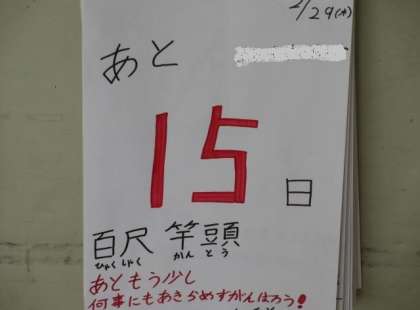 2/29(水)
あと
15
日
百尺 竿頭
ひゃく しゃく かん とう
あともう少し
何事にもあきらめずがんばろう!